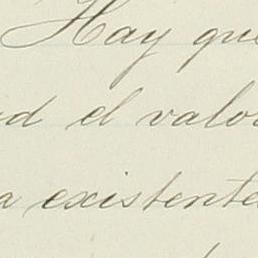 Hay que
d el valor
a existente